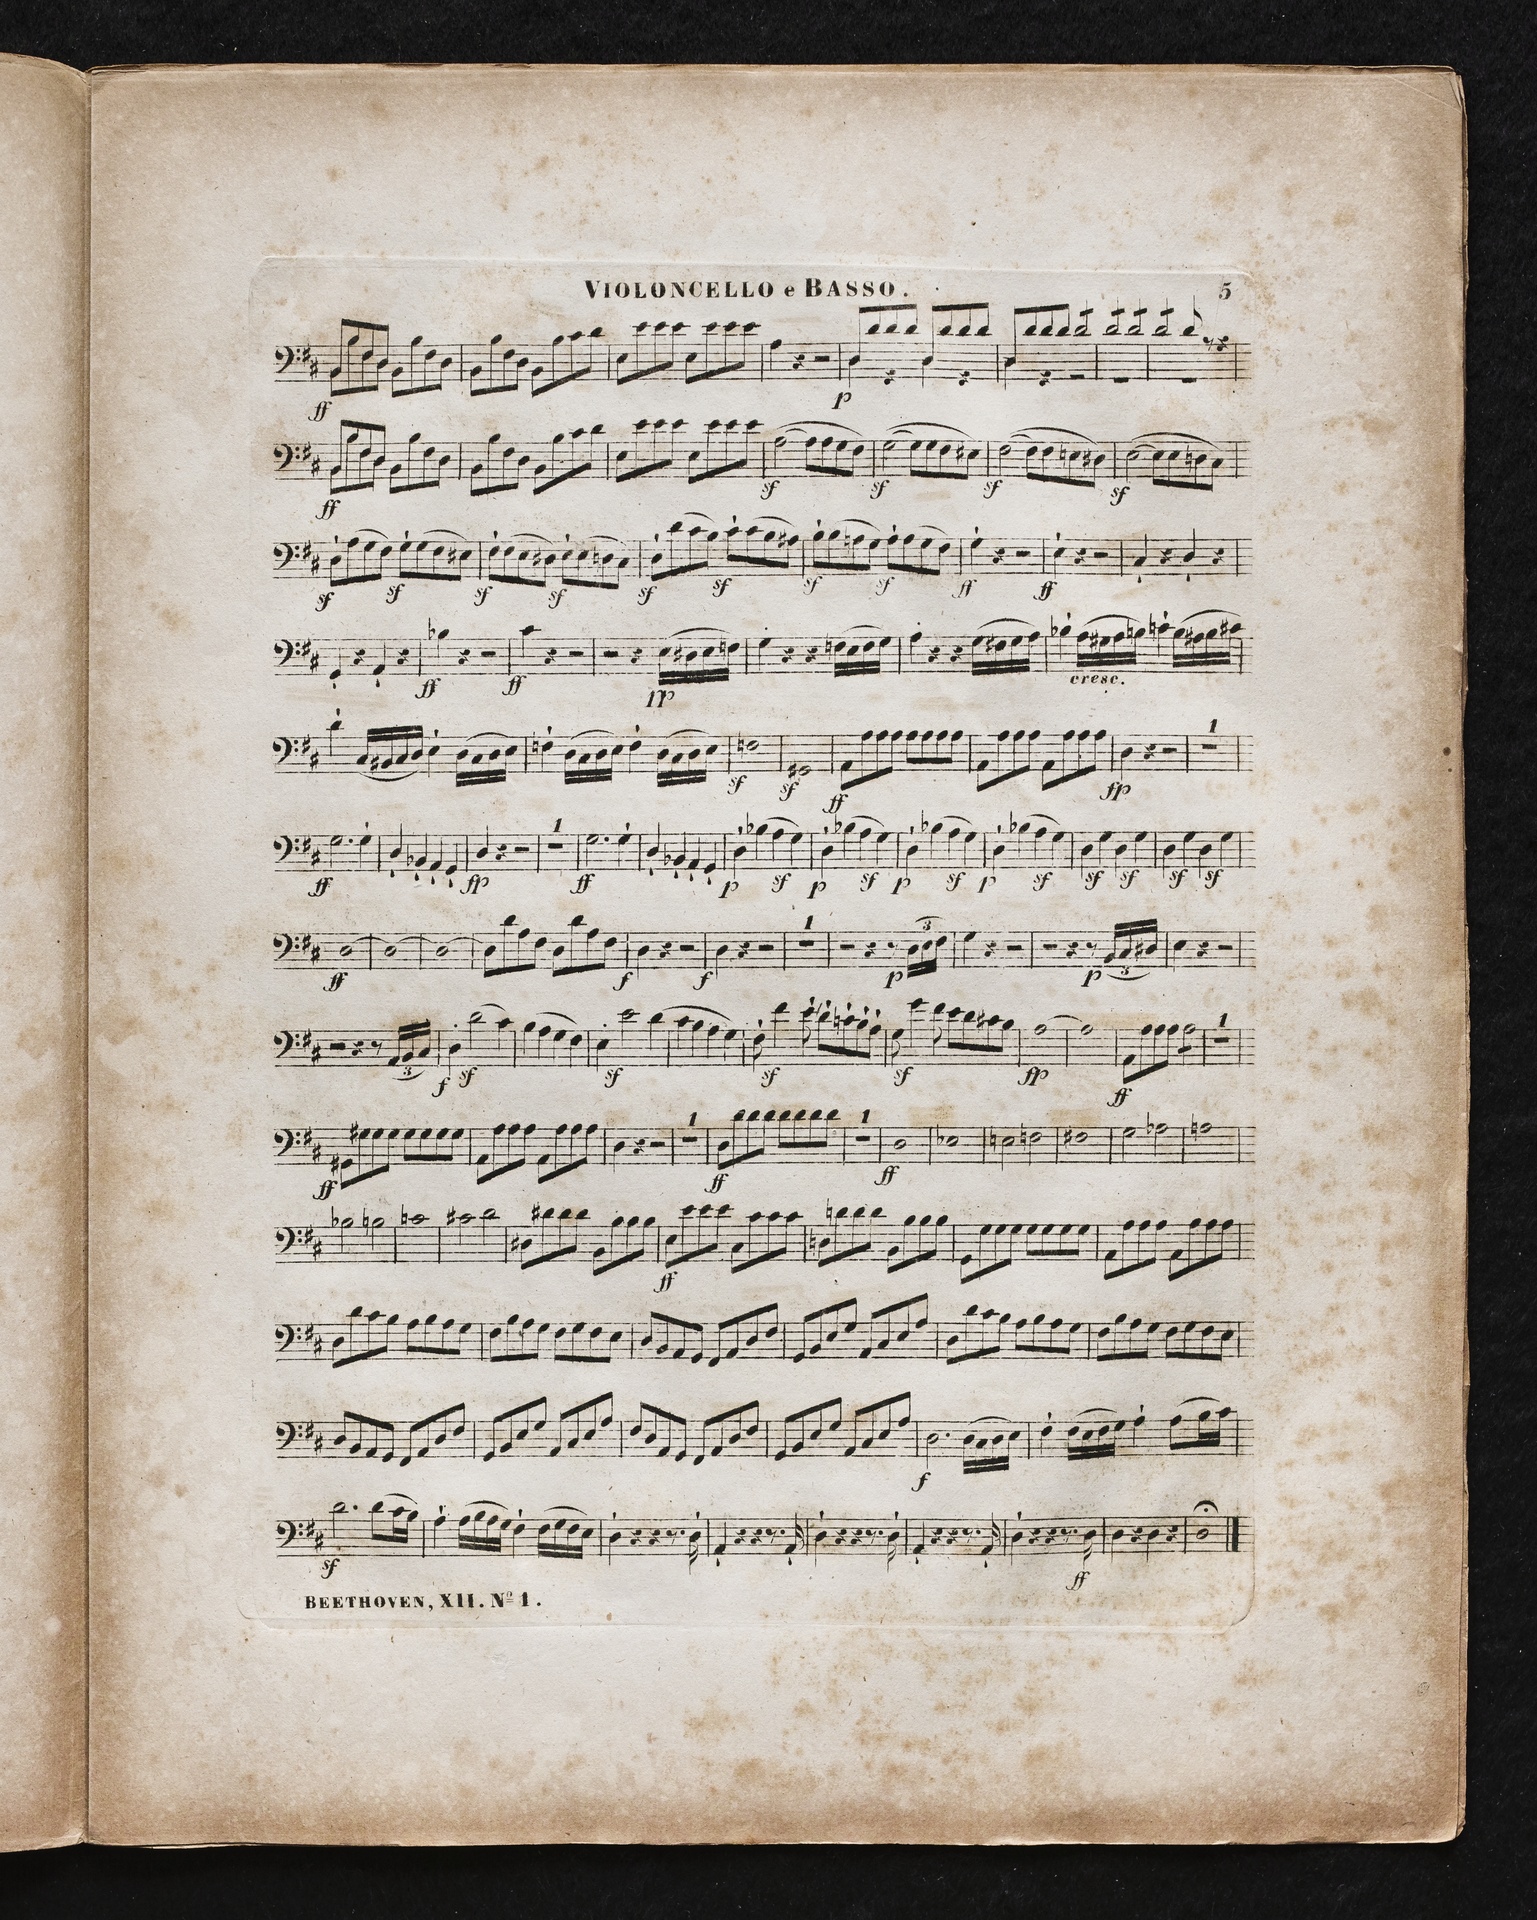 VIOLONCELLO e BASSO.
5
ff p
ff sf sf sf sf
sf sf sf sf sf sf sf sf ff ff
ff ff pp cresc.
sf sf ff fp 1
ff fp 1 ff p sf p sf p sf p sf sf sf sf sf
ff f f 1 p 3 p 3
3 f sf sf sf sf fp ff 1
ff 1 ff 1 ff
ff
f
sf ff
BEETHOVEN, XII. Nº 1.